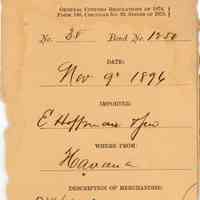 GENERAL CUSTOMS REGULATIONS OF 1874,
FORM 140, CIRCULAR NO. 93, SERIES OF 1875.
No. 38 Bond No. 1250
DATE:
Nov 9th 1896
IMPORTED:
E Hoffman & Son
WHERE FROM:
Havana
DESCRIPTION OF MERCHANDISE: